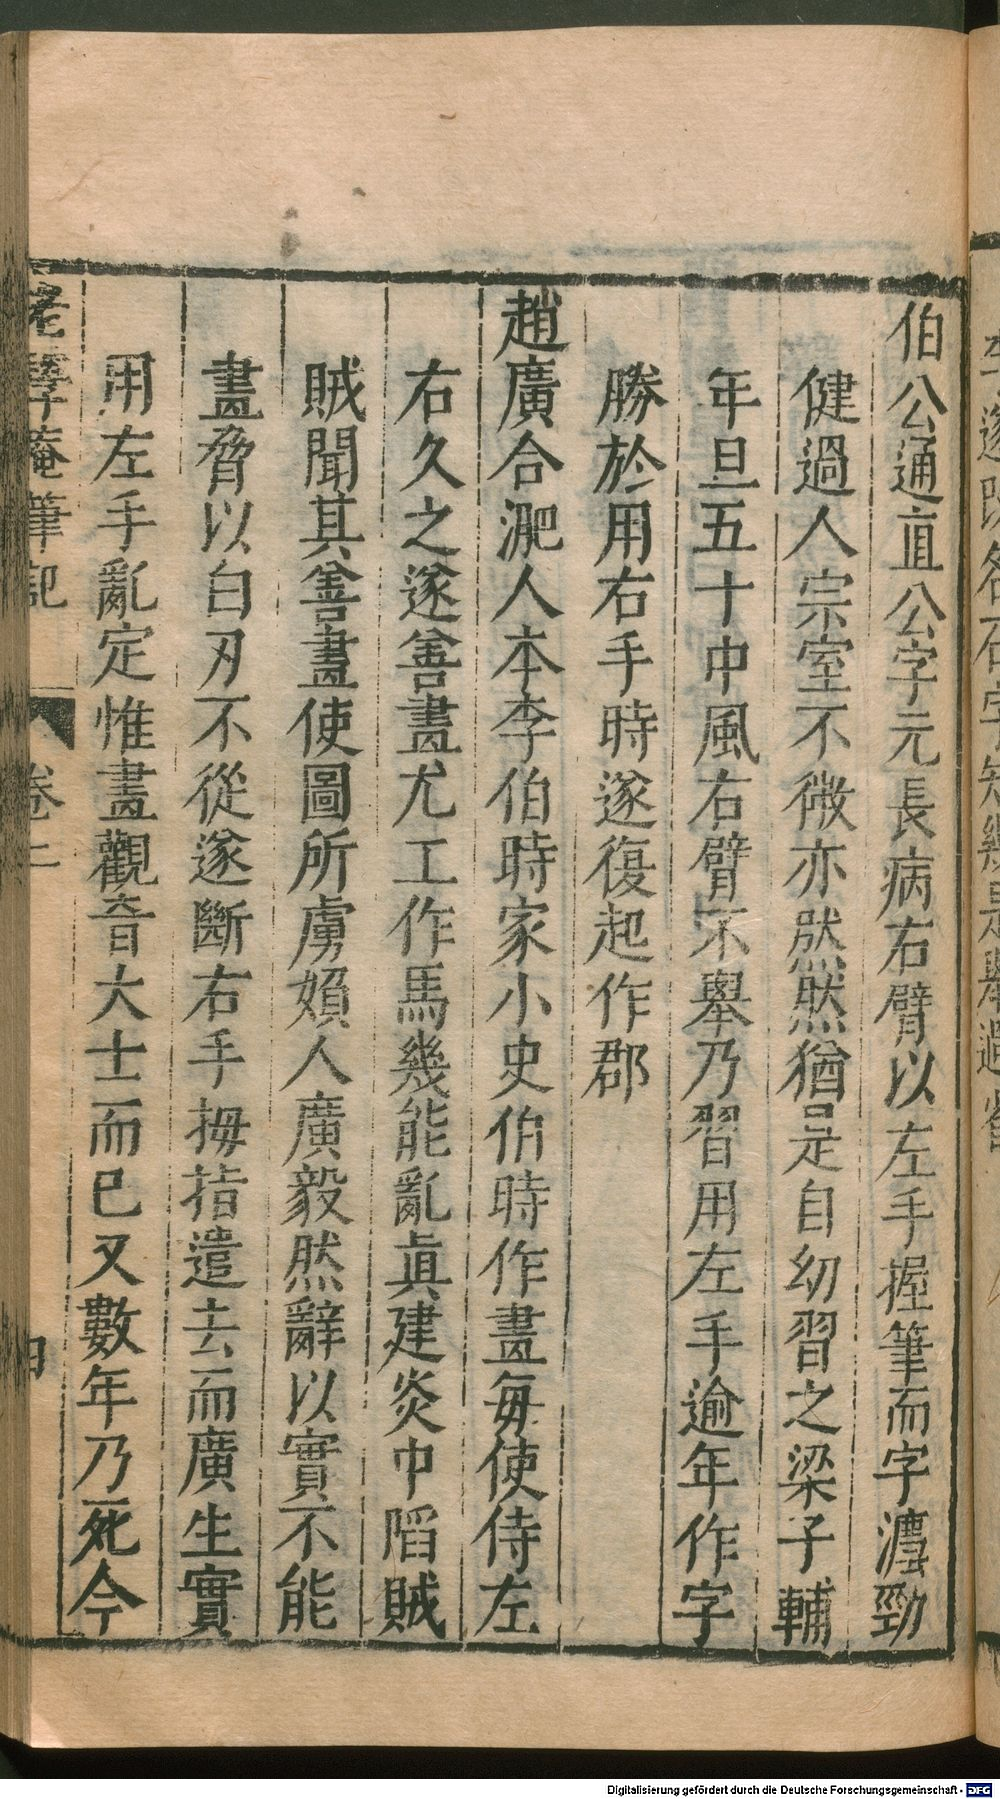 伯公通直公字元長病右臂以左手握筆而字瀀勁
健過人宗室不微亦然然猶是自幼習之梁子輔
年旦五十中風右臂不舉乃習用左手逾年作字
勝於用右手時遂復起作郡
趙廣合淝人本李伯時家小史伯時作畫每使侍左
右久之遂善畫尤工作馬幾能亂眞建炎中陷賊
賊聞其善畫使圖所虜嬪人廣毅然辭以實不能
畫脅以白刃不從遂斷右手拇指遣去而廣生實
用左手亂定惟畫觀音大士而已又數年乃死今
老學菴筆記 卷二 四
Digitalisierung gefördert durch die Deutsche Forschungsgemeinschaft - DFG